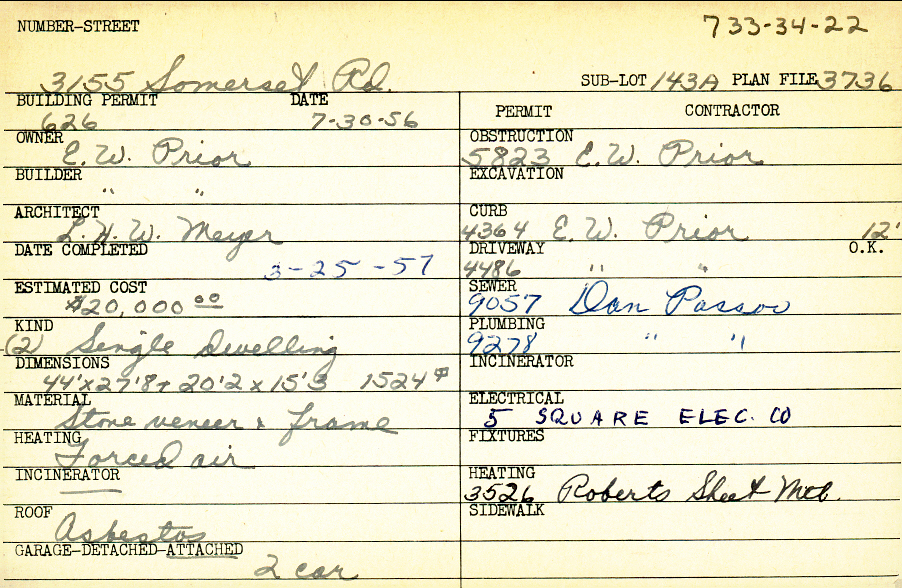 NUMBER-STREET
733-34-22
3155 Somerset Rd.
SUB-LOT 143A PLAN FILE 3736
BUILDING PERMIT DATE
626 7-30-56
OWNER
E. W. Prior
BUILDER
" "
ARCHITECT
L. H. W. Meyer
DATE COMPLETED
3-25-57
ESTIMATED COST
$20,000 00
KIND
(2) Single Dwelling
DIMENSIONS
44'x27'8+20'2x15'3 1524
MATERIAL
Stone veneer & frame
HEATING
Forced air
INCINERATOR
ROOF
Asbestos
GARAGE-DETACHED-ATTACHED
2 car
PERMIT CONTRACTOR
OBSTRUCTION
5823 E. W. Prior
EXCAVATION
CURB
4364 E. W. Prior 12'
DRIVEWAY O.K.
4486 " "
SEWER
9057 Dan Passov
PLUMBING
9278 " "
INCINERATOR
ELECTRICAL
5 SQUARE ELEC. CO
FIXTURES
HEATING
3526 Roberts Sheet Mtl.
SIDEWALK